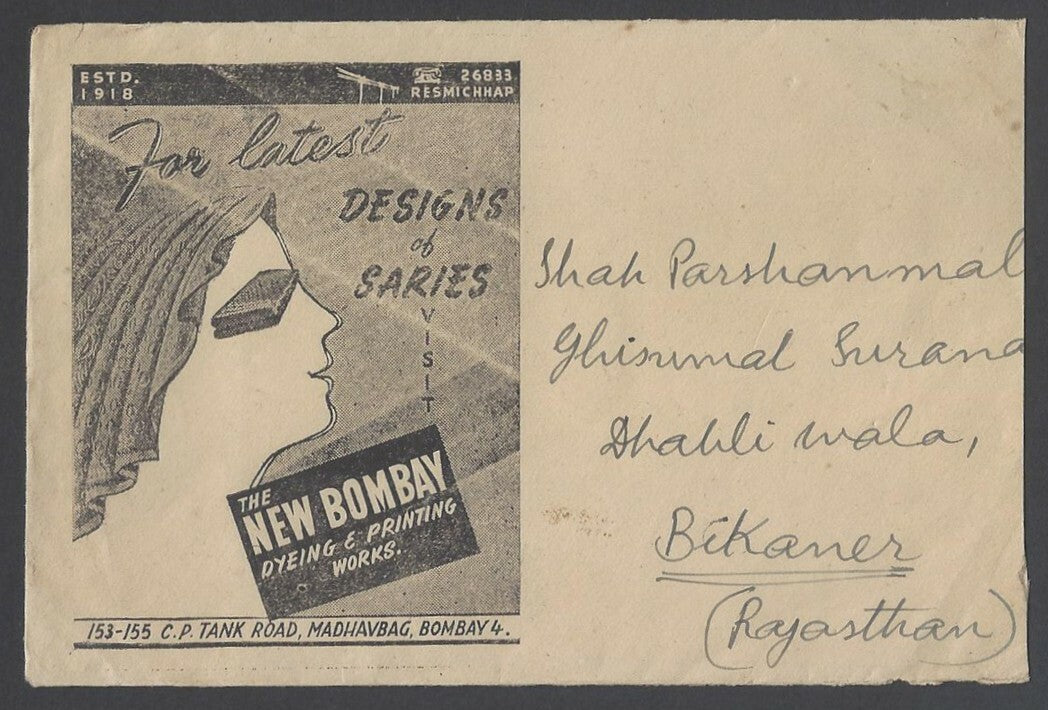 ESTD.
1918
26833
RESMICHHAP
For latest
DESIGNS
of
SARIES
VISIT
THE
NEW BOMBAY
DYEING & PRINTING
WORKS.
153-155 C.P. TANK ROAD, MADHAVBAG, BOMBAY 4.
Shah Parshanmal
Ghisumal Surana
Dhahli wala,
Bikaner
(Rajasthan)